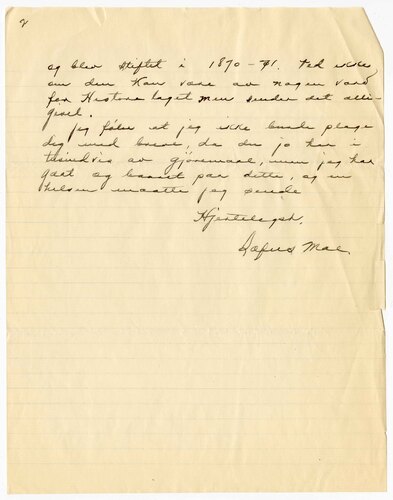 2
og blev stiftet i 1870-71. Ved ikke
om den kan være av nogen værd
for Historielaget men sender det alli-
gevel.
Jeg føler at jeg ikke burde plage
dig med breve, da du jo har i
tusindvis av gjøremaal, men jeg har
gaat og baaret paa dette, og en
helsen maatte jeg sende
Hjerteligst,
Moe.